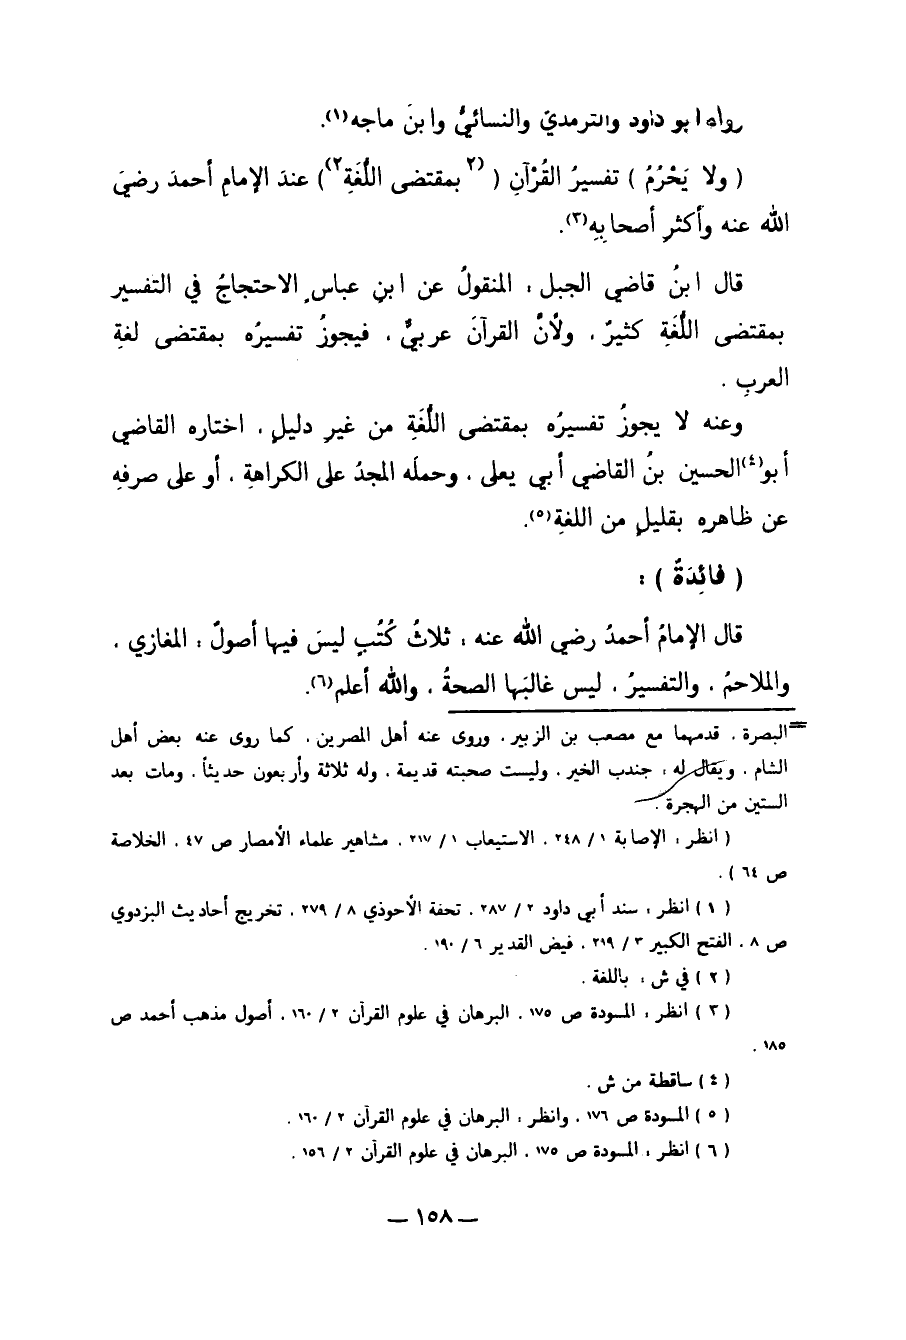 رواه أبو داود والترمذيّ والنسائيُّ وابنُ ماجه(١).
( ولا يَحْرُمُ ) تفسيرُ القُرْآنِ ( (٢ بمقتضى اللُّغَةِ٢) ) عندَ الإمامِ أحمدَ رضيَ
الله عنه وأكثرِ أصحابِهِ(٣).
قال ابنُ قاضي الجبل : المنقولُ عن ابنِ عباسٍ الاحتجاجُ في التفسير
بمقتضى اللُّغَةِ كثيرٌ ، ولأنَّ القرآنَ عربيٌّ ، فيجوزُ تفسيرُه بمقتضى لغةِ
العربِ .
وعنه لا يجوزُ تفسيرُه بمقتضى اللُّغَةِ من غيرِ دليلٍ ، اختاره القاضي
أبو(٤) الحسين بنُ القاضي أبي يعلى ، وحملَه المجدُ على الكراهةِ ، أو على صرفِهِ
عن ظاهرهِ بقليلٍ من اللغةِ(٥).
( فائِدَةٌ ) :
قال الإمامُ أحمدُ رضي الله عنه : ثلاثُ كُتُبٍ ليسَ فيها أصولٌ : المغازي ،
والملاحمُ ، والتفسيرُ ، ليس غالبَها الصحةُ ، والله أعلم(٦).
= البصرة ، قدمهما مع مصعب بن الزبير ، وروى عنه أهل المصرين ، كما روى عنه بعض أهل
الشام ، ويقال له : جندب الخير ، وليست صحبته قديمة ، وله ثلاثة وأربعون حديثاً ، ومات بعد
الستين من الهجرة .
( انظر : الإصابة ١ / ٢٤٨ ، الاستيعاب ١ / ٢١٧ ، مشاهير علماء الأمصار ص ٤٧ ، الخلاصة
ص ٦٤ ) .
( ١ ) انظر : سند أبي داود ٢ / ٢٨٧ ، تحفة الأحوذي ٨ / ٢٧٩ ، تخريج أحاديث البزدوي
ص ٨ ، الفتح الكبير ٣ / ٢١٩ ، فيض القدير ٦ / ١٩٠ .
( ٢ ) في ش : باللغة .
( ٣ ) انظر : المسودة ص ١٧٥ ، البرهان في علوم القرآن ٢ / ١٦٠ ، أصول مذهب أحمد ص
١٨٥ .
( ٤ ) ساقطة من ش .
( ٥ ) المسودة ص ١٧٦ ، وانظر : البرهان في علوم القرآن ٢ / ١٦٠ .
( ٦ ) انظر : المسودة ص ١٧٥ ، البرهان في علوم القرآن ٢ / ١٥٦ .
— ١٥٨ —